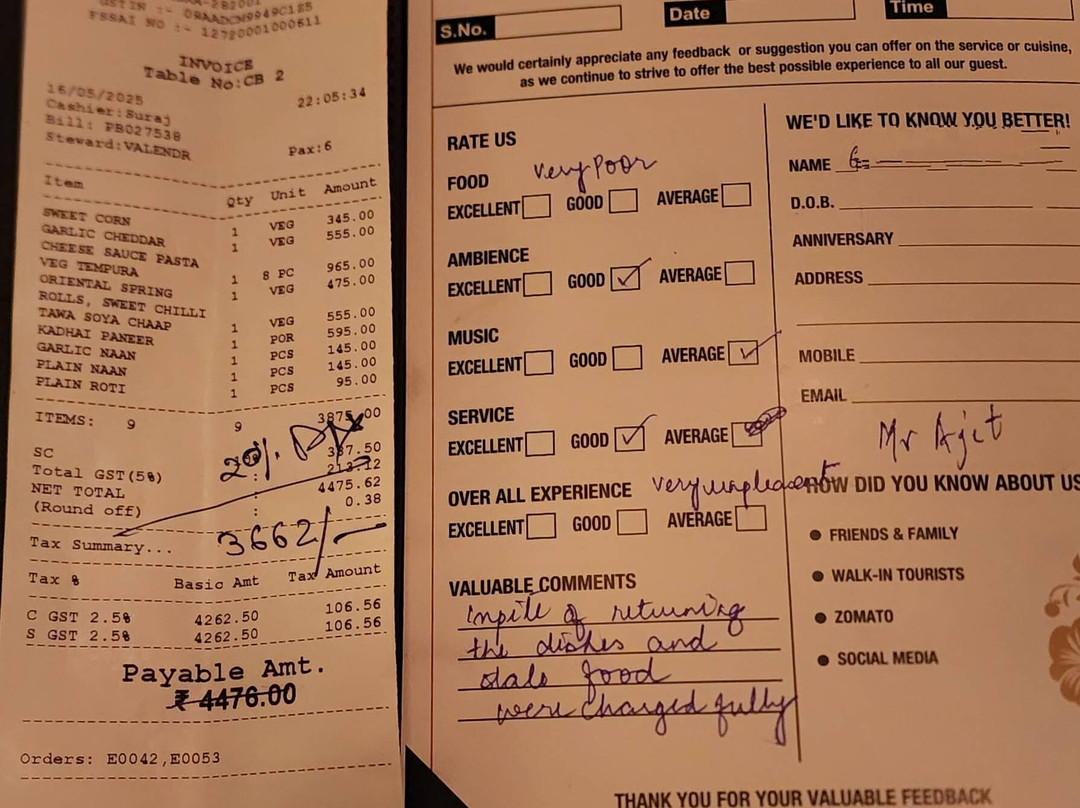 GSTIN :- 09AADCM9949C1Z5
FSSAI NO :- 12720001000611
INVOICE
Table No:CB 2
16/05/2025 22:05:34
Cashier:Suraj
Bill: PB027538
Steward:VALENDR Pax:6
Item Qty Unit Amount
SWEET CORN 1 VEG 345.00
GARLIC CHEDDAR 1 VEG 555.00
CHEESE SAUCE PASTA
VEG TEMPURA 1 8 PC 965.00
ORIENTAL SPRING 1 VEG 475.00
ROLLS, SWEET CHILLI
TAWA SOYA CHAAP 1 VEG 555.00
KADHAI PANEER 1 POR 595.00
GARLIC NAAN 1 PCS 145.00
PLAIN NAAN 1 PCS 145.00
PLAIN ROTI 1 PCS 95.00
ITEMS: 9 9 3875.00
20%.
SC : 387.50
Total GST(5%) : 213.12
NET TOTAL 4475.62
(Round off) : 0.38
3662/-
Tax Summary...
Tax % Basic Amt Tax Amount
C GST 2.5% 4262.50 106.56
S GST 2.5% 4262.50 106.56
Payable Amt.
₹ 4476.00
Orders: E0042,E0053
S.No. Date Time
We would certainly appreciate any feedback or suggestion you can offer on the service or cuisine,
as we continue to strive to offer the best possible experience to all our guest.
RATE US
very Poor
FOOD
EXCELLENT GOOD AVERAGE
AMBIENCE
EXCELLENT GOOD ✓ AVERAGE
MUSIC
EXCELLENT GOOD AVERAGE ✓
SERVICE
EXCELLENT GOOD ✓ AVERAGE
OVER ALL EXPERIENCE very unpleasent
EXCELLENT GOOD AVERAGE
VALUABLE COMMENTS
inpite of returning
the dishes and
stale food
were charged fully
WE'D LIKE TO KNOW YOU BETTER!
NAME
D.O.B.
ANNIVERSARY
ADDRESS
MOBILE
EMAIL
Mr Ajit
HOW DID YOU KNOW ABOUT US
● FRIENDS & FAMILY
● WALK-IN TOURISTS
● ZOMATO
● SOCIAL MEDIA
THANK YOU FOR YOUR VALUABLE FEEDBACK